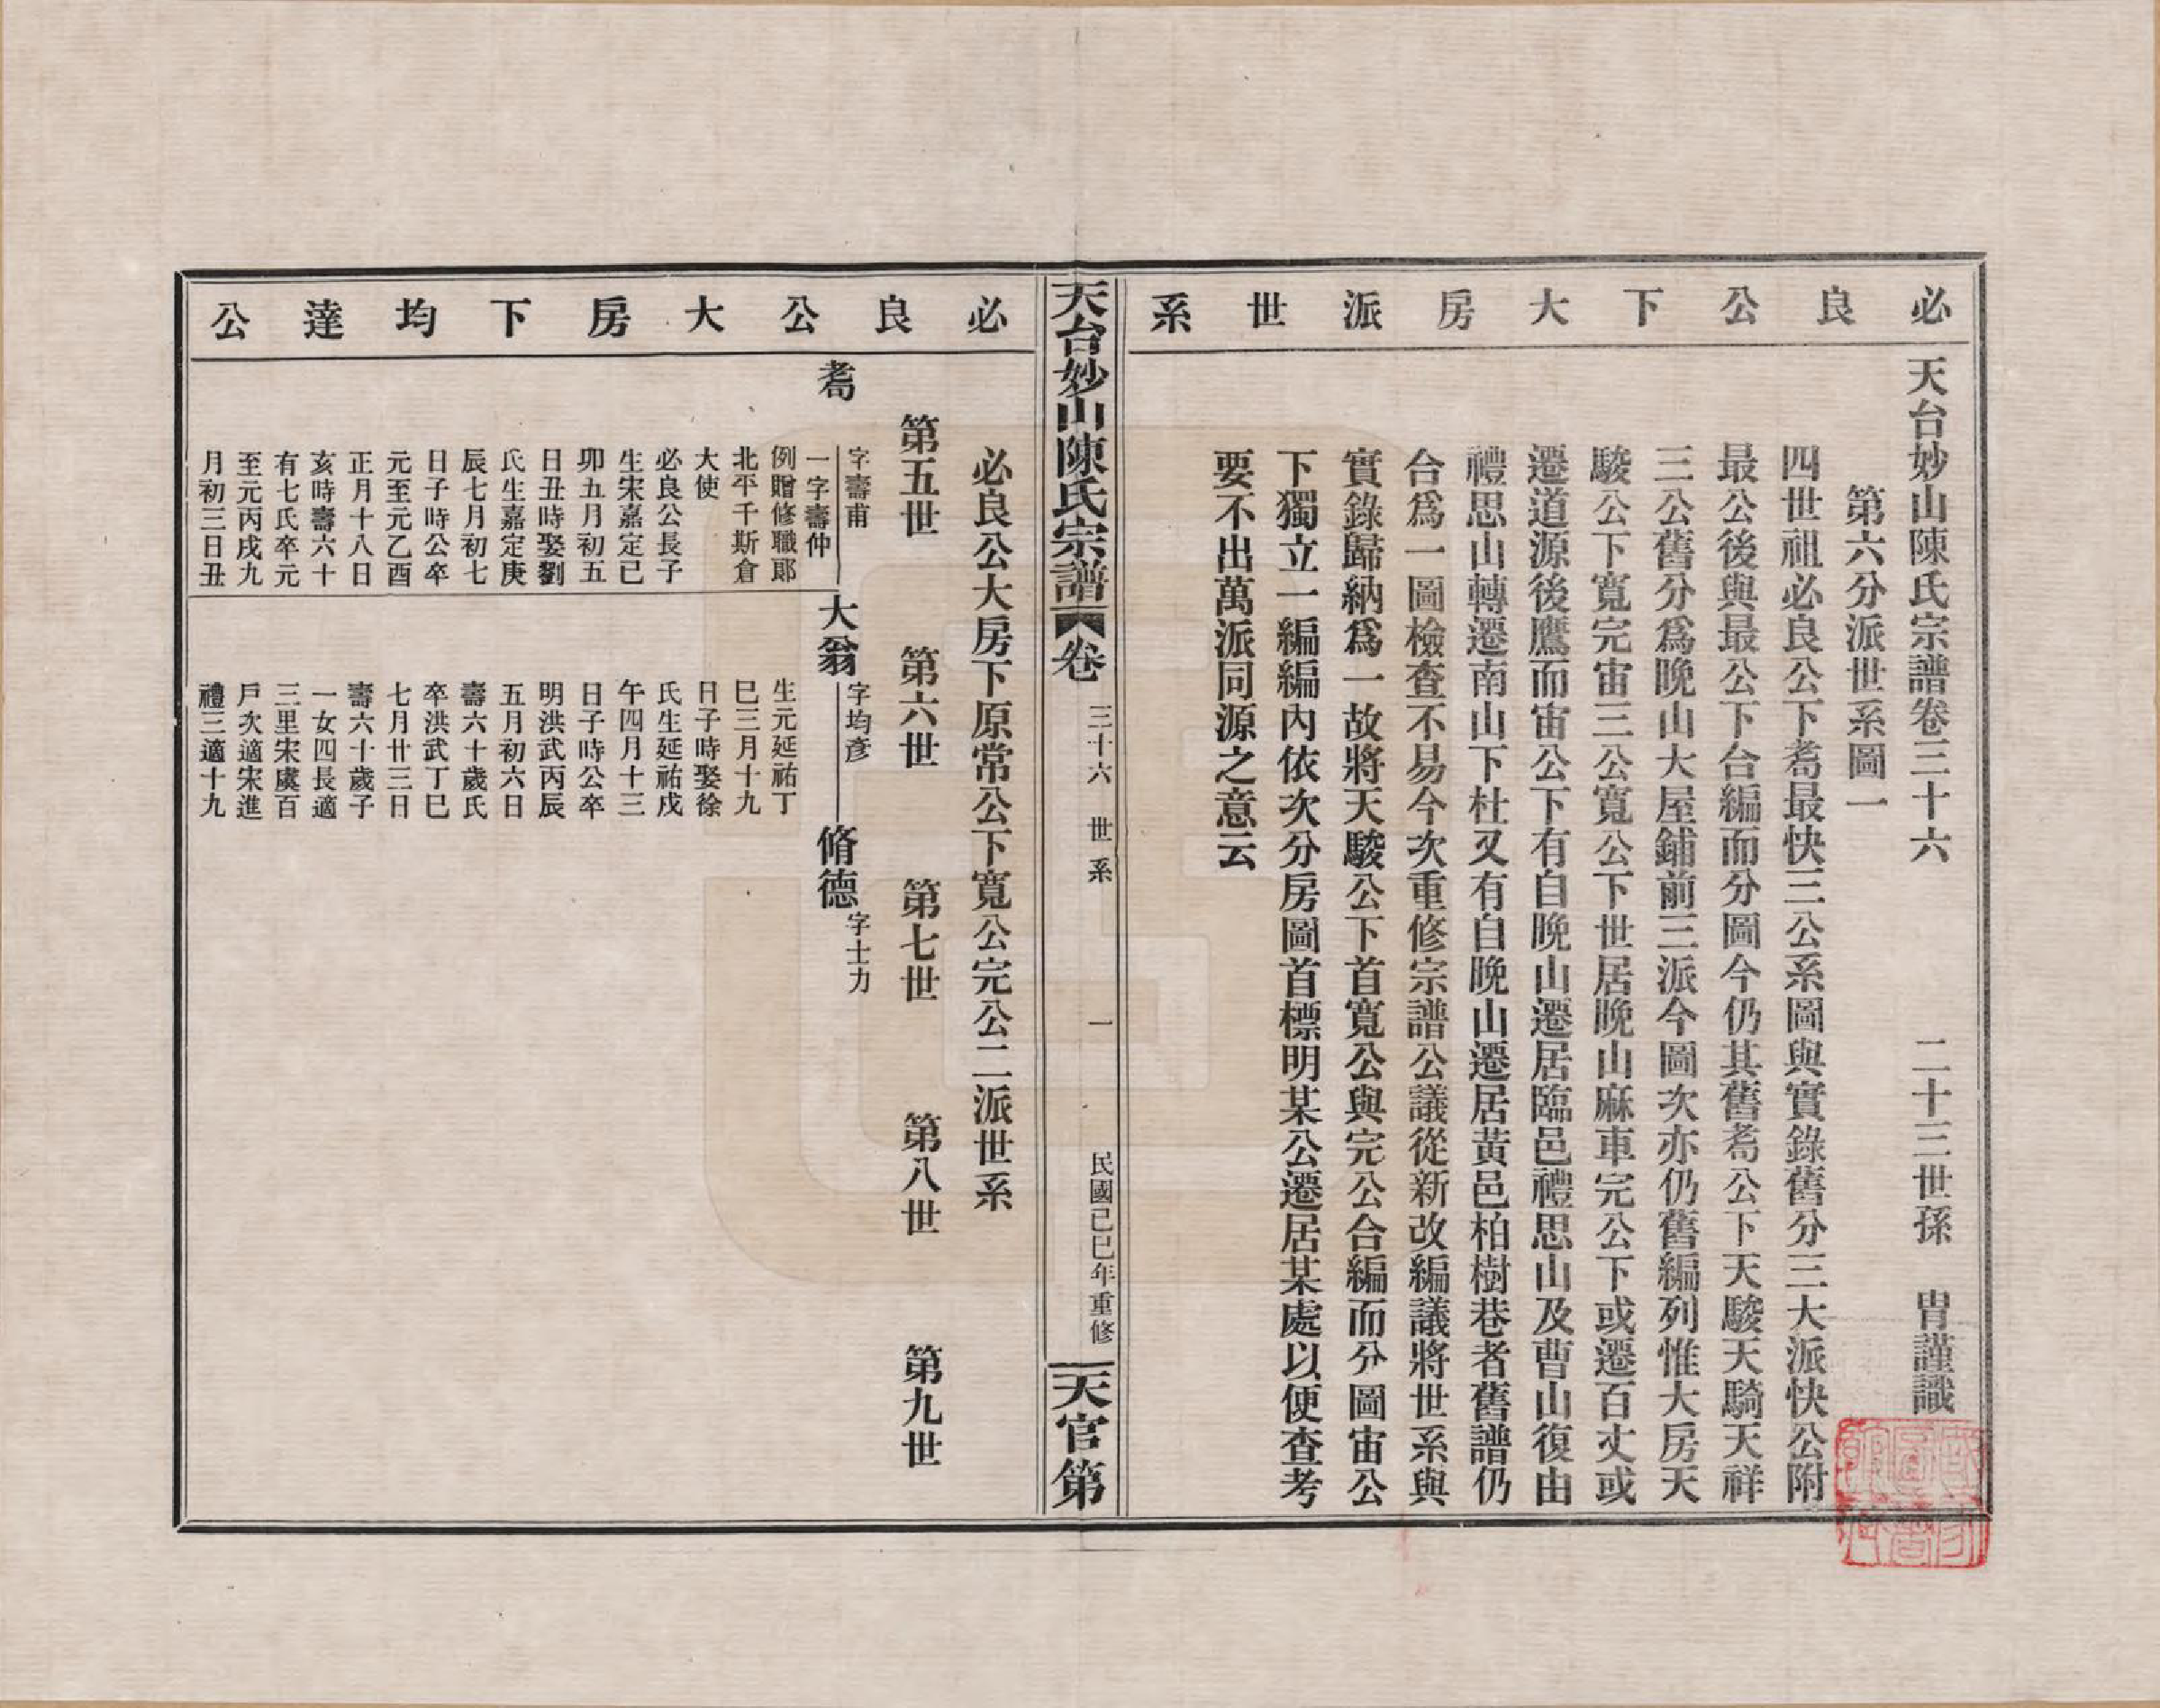 必良公下大房派世系
天台妙山陳氏宗譜卷三十六　二十三世孫　冑謹識
第六分派世系圖一
四世祖必良公下耇最快三公系圖與實錄舊分三大派快公附
最公後與最公下台編而分圖今仍其舊耇公下天駿天騎天祥
三公舊分爲晚山大屋鋪前三派今圖次亦仍舊編列惟大房天
駿公下寬完宙三公寬公下世居晚山麻車完公下或遷百丈或
遷道源後鷹而宙公下有自晚山遷居臨邑禮思山及曹山復由
禮思山轉遷南山下杜又有自晚山遷居黃邑柏樹巷者舊譜仍
合爲一圖檢查不易今次重修宗譜公議從新改編議將世系與
實錄歸納爲一故將天駿公下首寬公與完公合編而分圖宙公
下獨立一編編內依次分房圖首標明某公遷居某處以便查考
要不出萬派同源之意云
天台妙山陳氏宗譜　卷　三十六　世系　一　民國己巳年重修　天官第
必良公大房下均達公
必良公大房下原常公下寬公完公二派世系
第五世　第六世　第七世　第八世　第九世
耇
字壽甫
一字壽仲
例贈修職郎
北平千斯倉
大使
必良公長子
生宋嘉定己
卯五月初五
日丑時娶劉
氏生嘉定庚
辰七月初七
日子時公卒
元至元乙酉
正月十八日
亥時壽六十
有七氏卒元
至元丙戌九
月初三日丑
大翁
字均彥
生元延祐丁
巳三月十九
日子時娶徐
氏生延祐戊
午四月十三
日子時公卒
明洪武丙辰
五月初六日
壽六十歲氏
卒洪武丁巳
七月廿三日
壽六十歲子
一女四長適
三里宋處百
戶次適宋進
禮三適十九
脩德
字士力